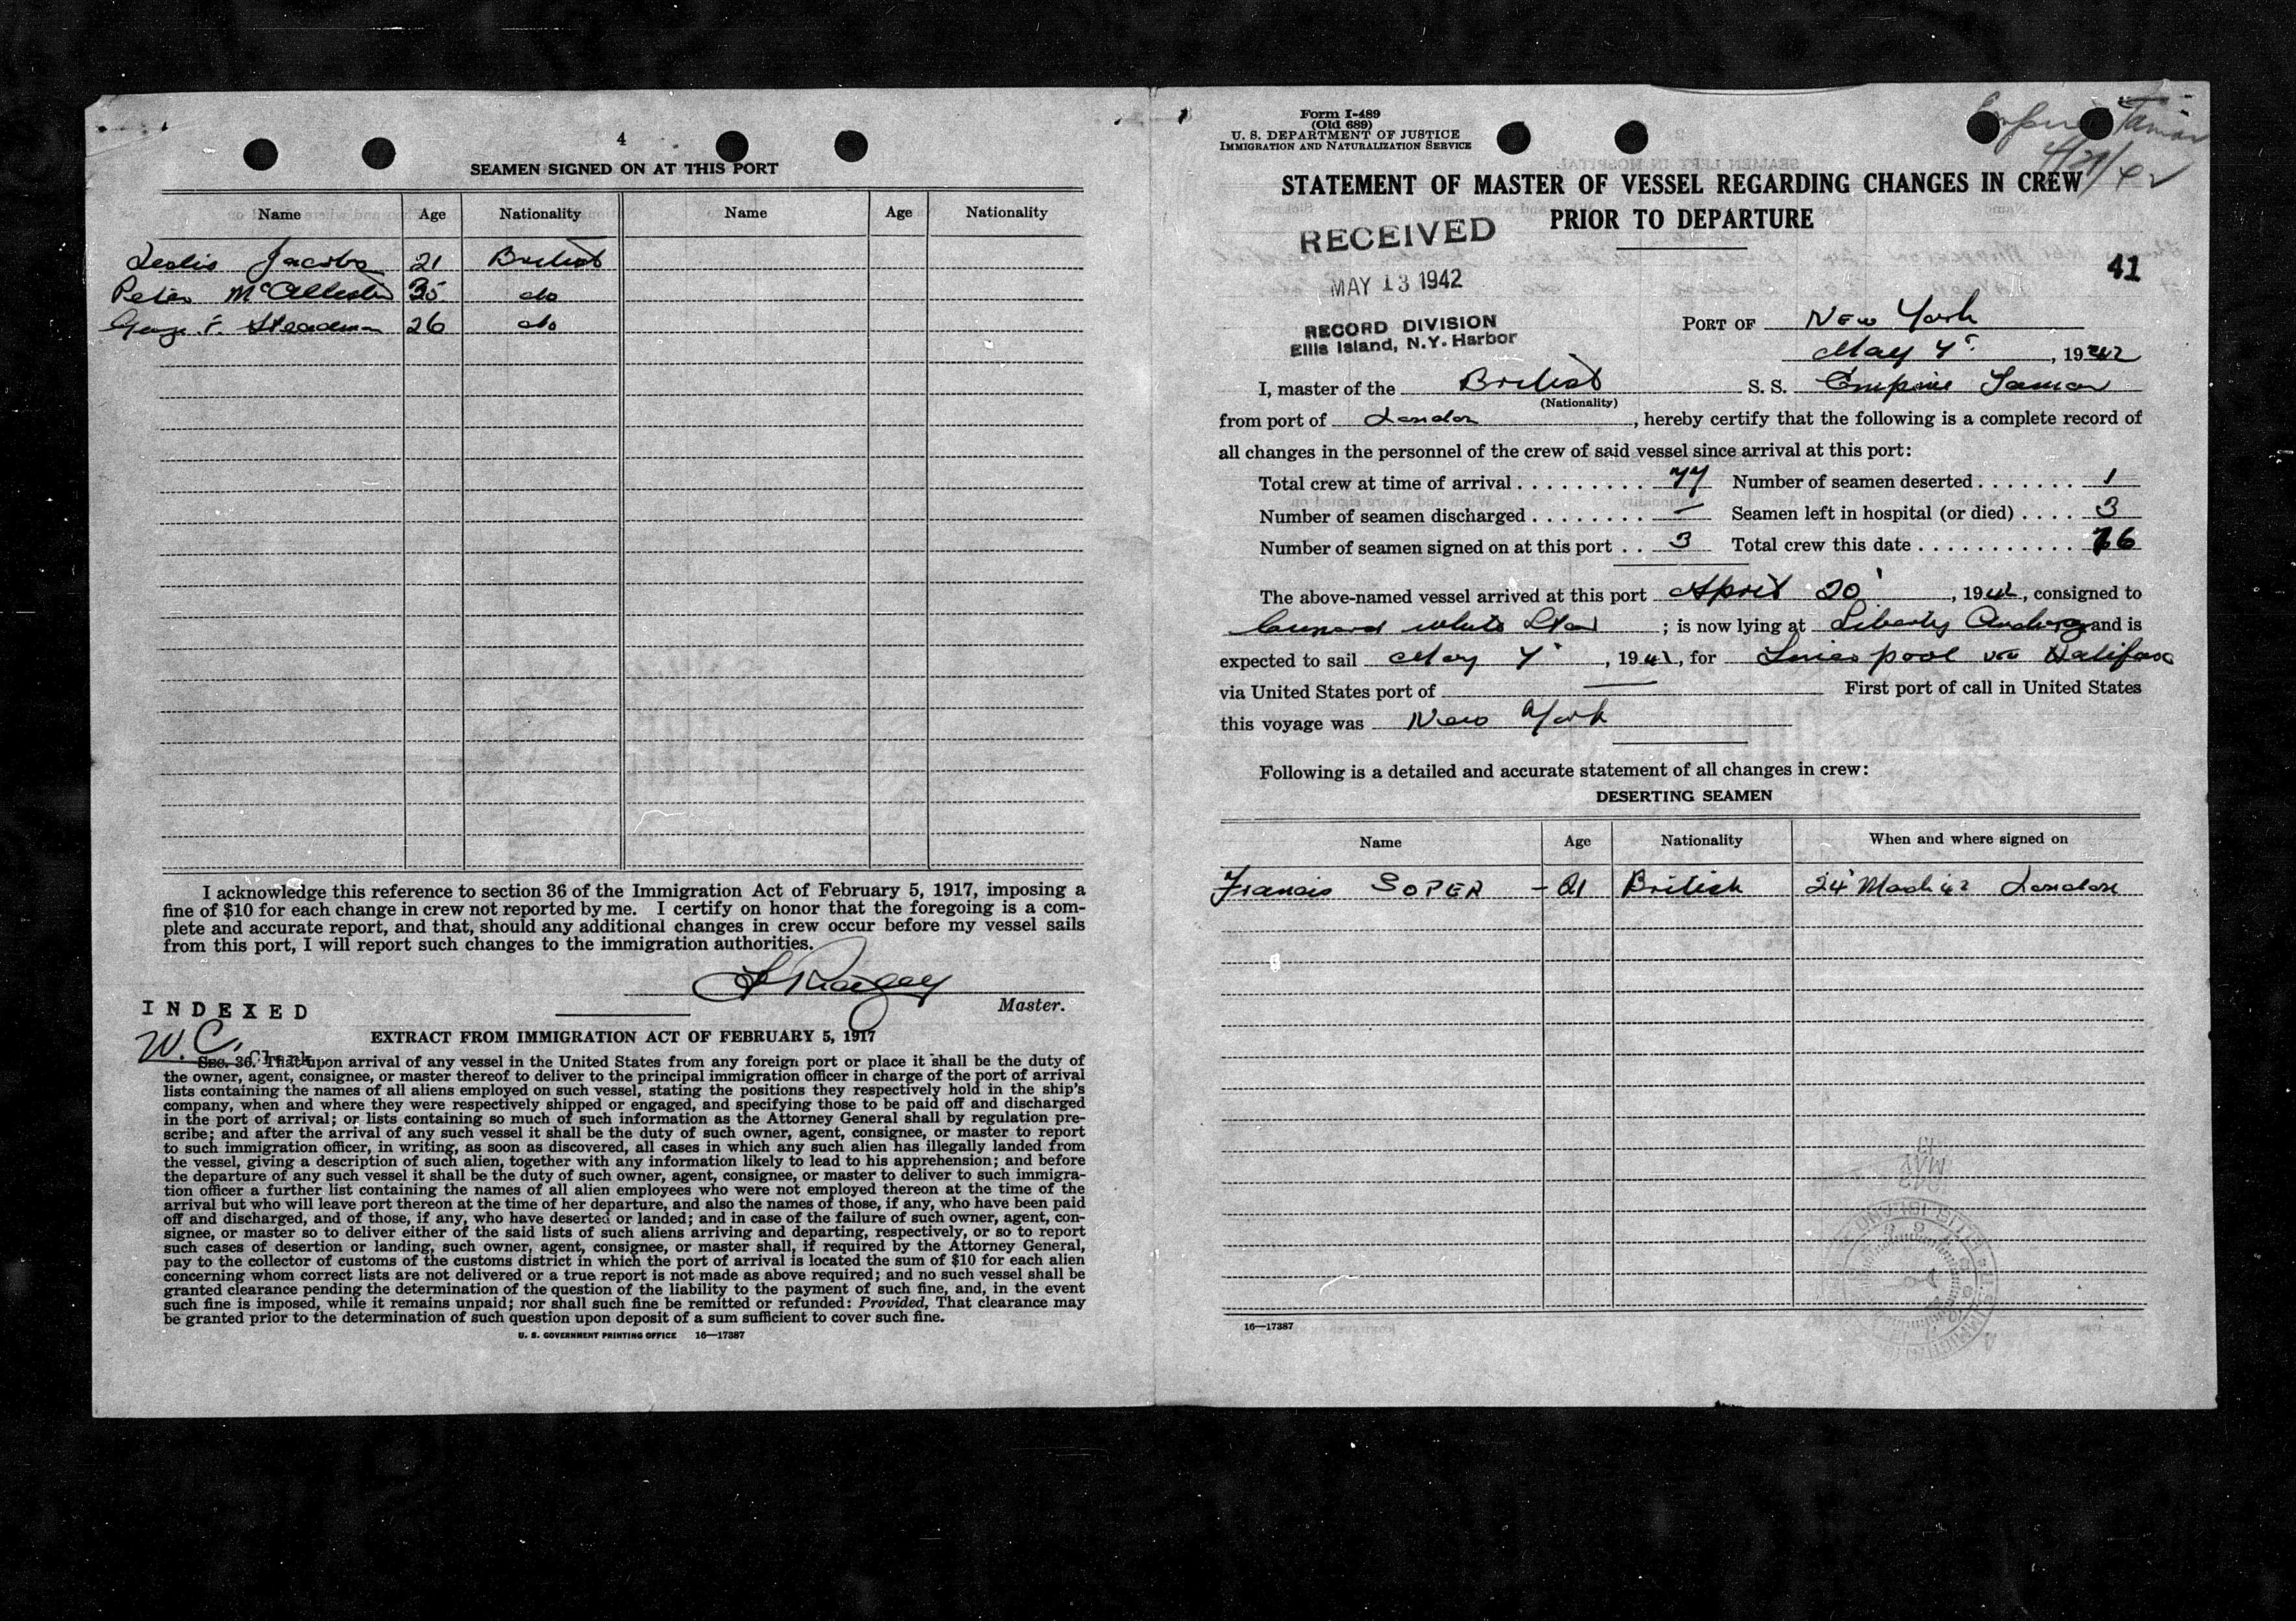 4
SEAMEN SIGNED ON AT THIS PORT
Name Age Nationality Name Age Nationality
Leslie Jacobs 21 British
Peter McAllister 35 do
George F. Steadman 26 do
I acknowledge this reference to section 36 of the Immigration Act of February 5, 1917, imposing a
fine of $10 for each change in crew not reported by me. I certify on honor that the foregoing is a com-
plete and accurate report, and that, should any additional changes in crew occur before my vessel sails
from this port, I will report such changes to the immigration authorities.
Master.
INDEXED
W. C.
Clerk
EXTRACT FROM IMMIGRATION ACT OF FEBRUARY 5, 1917
SEC. 36. That upon arrival of any vessel in the United States from any foreign port or place it shall be the duty of
the owner, agent, consignee, or master thereof to deliver to the principal immigration officer in charge of the port of arrival
lists containing the names of all aliens employed on such vessel, stating the positions they respectively hold in the ship's
company, when and where they were respectively shipped or engaged, and specifying those to be paid off and discharged
in the port of arrival; or lists containing so much of such information as the Attorney General shall by regulation pre-
scribe; and after the arrival of any such vessel it shall be the duty of such owner, agent, consignee, or master to report
to such immigration officer, in writing, as soon as discovered, all cases in which any such alien has illegally landed from
the vessel, giving a description of such alien, together with any information likely to lead to his apprehension; and before
the departure of any such vessel it shall be the duty of such owner, agent, consignee, or master to deliver to such immigra-
tion officer a further list containing the names of all alien employees who were not employed thereon at the time of the
arrival but who will leave port thereon at the time of her departure, and also the names of those, if any, who have been paid
off and discharged, and of those, if any, who have deserted or landed; and in case of the failure of such owner, agent, con-
signee, or master so to deliver either of the said lists of such aliens arriving and departing, respectively, or so to report
such cases of desertion or landing, such owner, agent, consignee, or master shall, if required by the Attorney General,
pay to the collector of customs of the customs district in which the port of arrival is located the sum of $10 for each alien
concerning whom correct lists are not delivered or a true report is not made as above required; and no such vessel shall be
granted clearance pending the determination of the question of the liability to the payment of such fine, and, in the event
such fine is imposed, while it remains unpaid; nor shall such fine be remitted or refunded: Provided, That clearance may
be granted prior to the determination of such question upon deposit of a sum sufficient to cover such fine.
U. S. GOVERNMENT PRINTING OFFICE 16—17387
Form I-489
(Old 689)
U. S. DEPARTMENT OF JUSTICE
IMMIGRATION AND NATURALIZATION SERVICE
Empire Tamar
4/21/42
STATEMENT OF MASTER OF VESSEL REGARDING CHANGES IN CREW
PRIOR TO DEPARTURE
RECEIVED
MAY 13 1942
RECORD DIVISION
Ellis Island, N.Y. Harbor
41
PORT OF New York
May 7, 1942
I, master of the British S. S. Empire Tamar
(Nationality)
from port of London, hereby certify that the following is a complete record of
all changes in the personnel of the crew of said vessel since arrival at this port:
Total crew at time of arrival 77 Number of seamen deserted 1
Number of seamen discharged — Seamen left in hospital (or died) 3
Number of seamen signed on at this port 3 Total crew this date 76
The above-named vessel arrived at this port April 20, 1942, consigned to
Cunard White Star; is now lying at Liberty Anchorage and is
expected to sail May 7, 194, for Liverpool via Halifax
via United States port of — First port of call in United States
this voyage was New York
Following is a detailed and accurate statement of all changes in crew:
DESERTING SEAMEN
Name Age Nationality When and where signed on
Francis SOPER - 21 British 24 March 42 London
16—17387